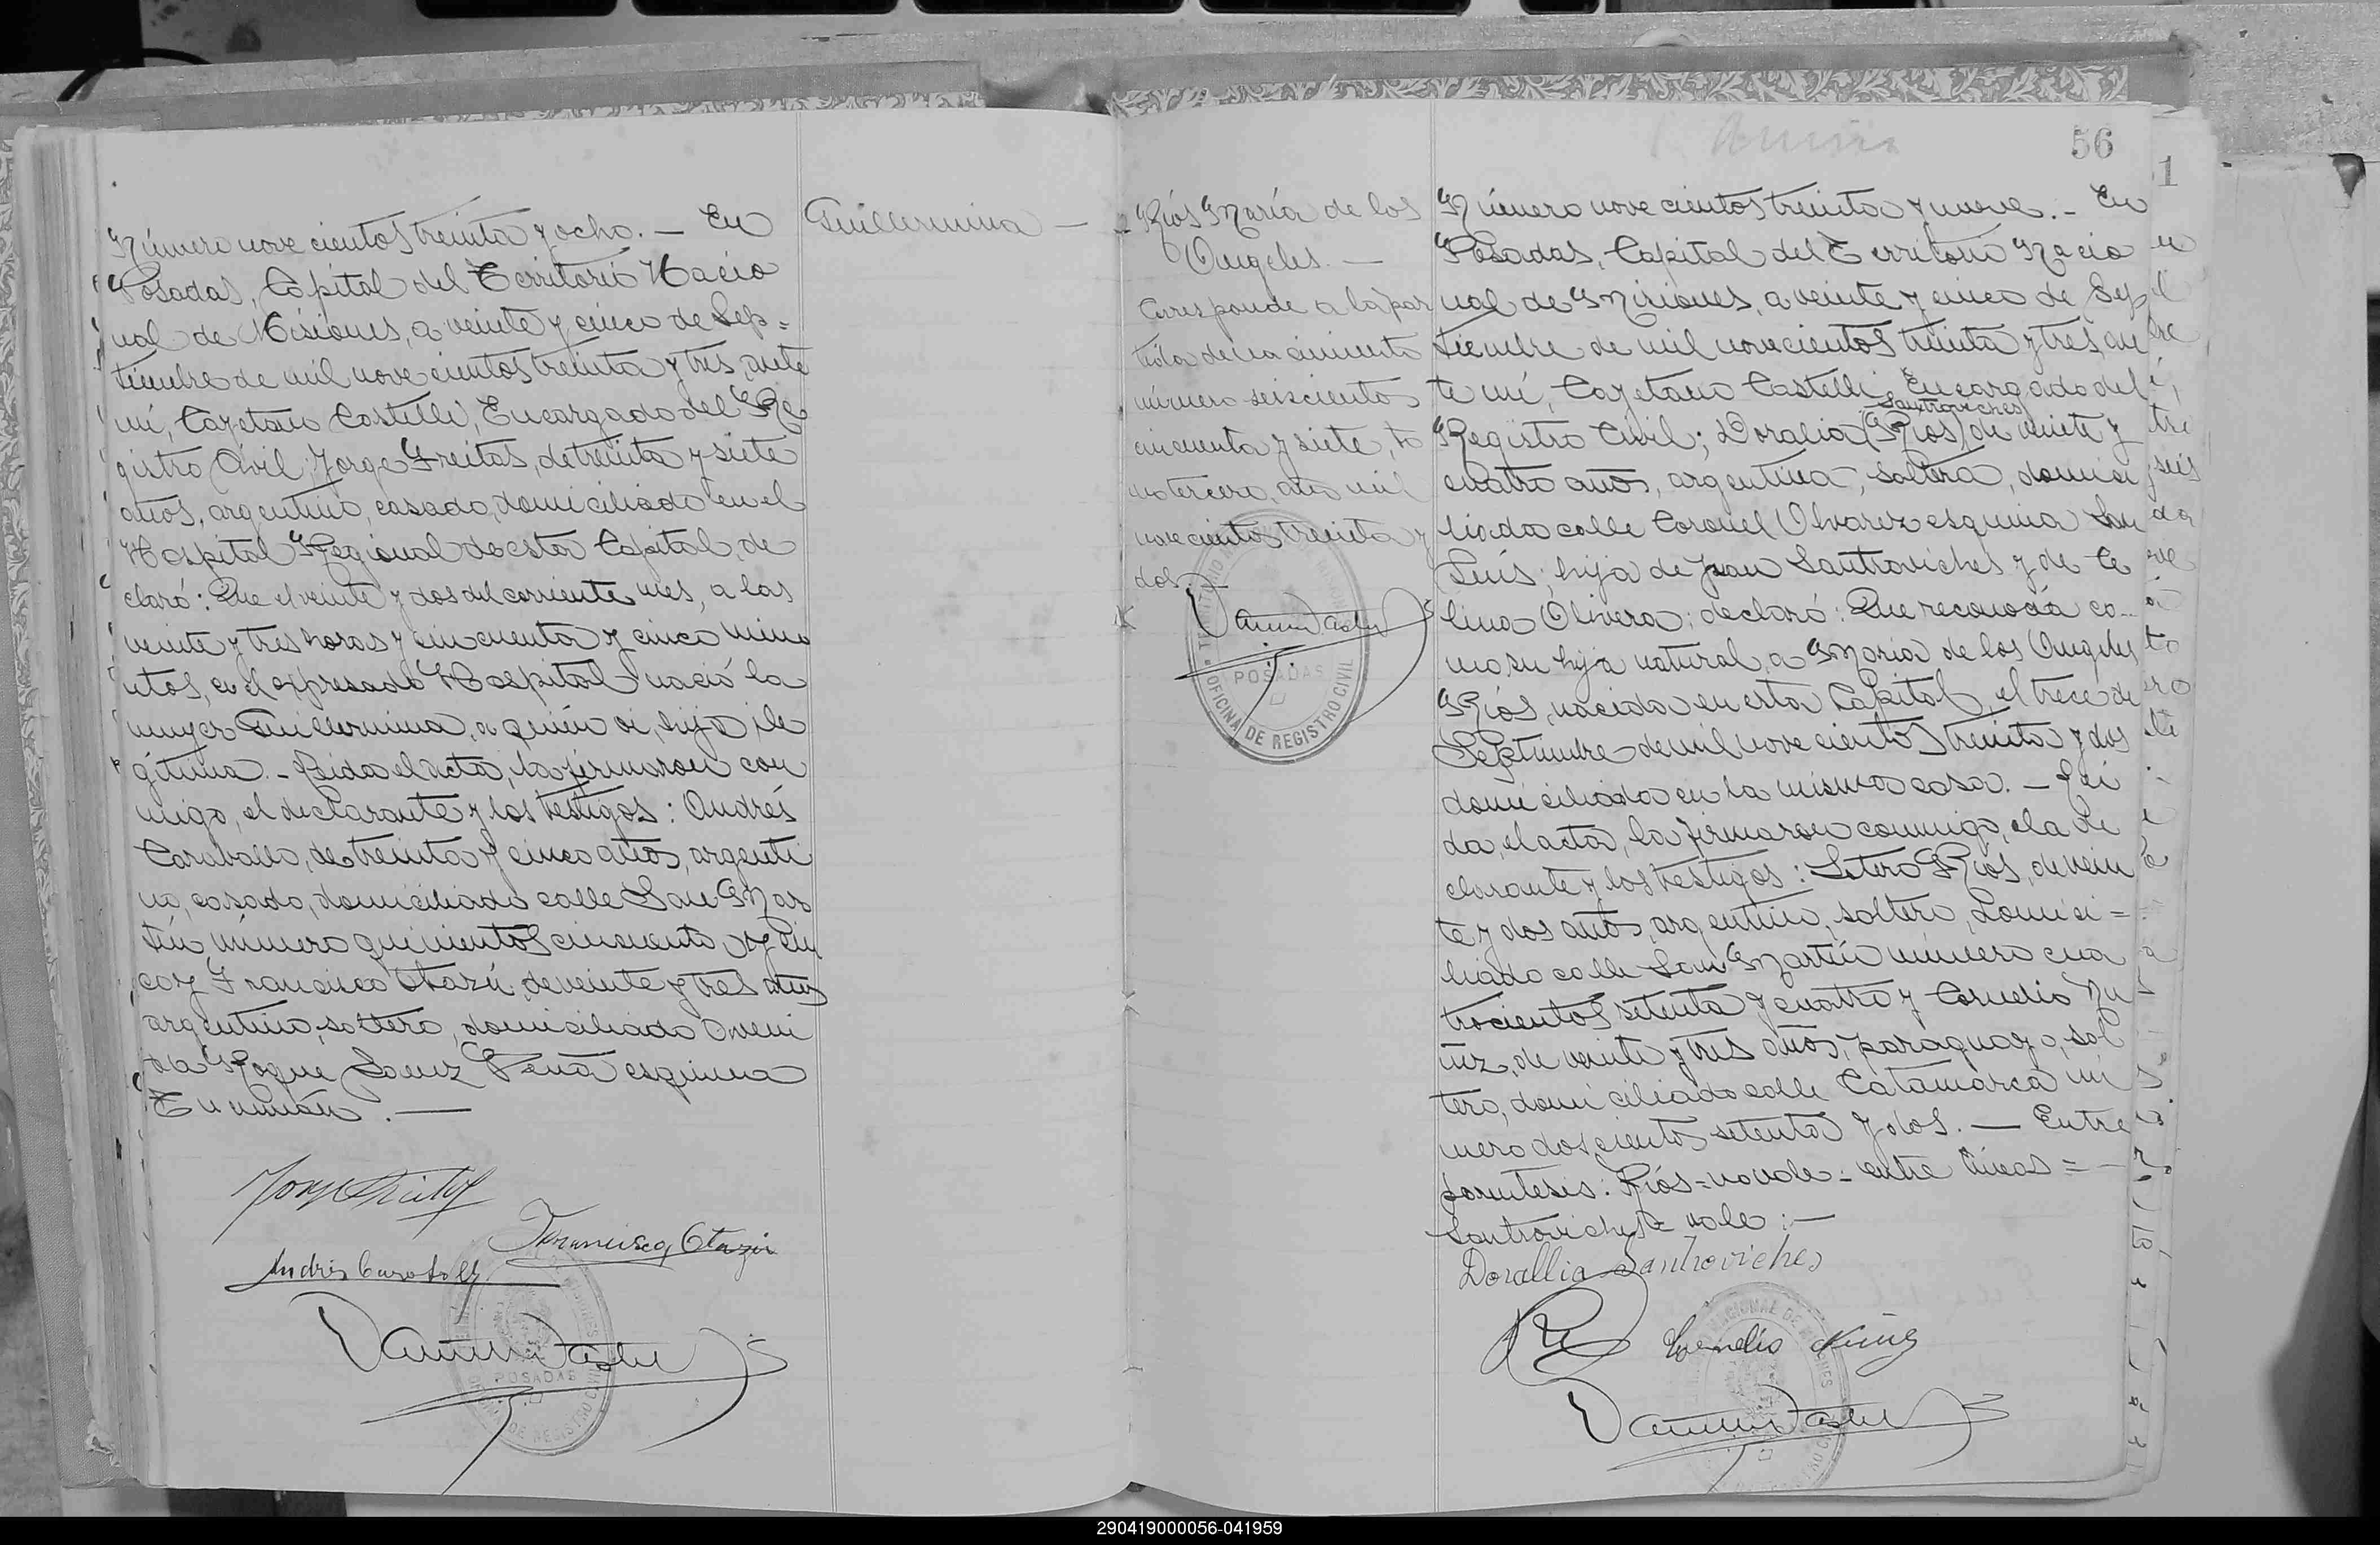 Número novecientos treinta y ocho. — En
Posadas, Capital del Territorio Nacio
nal de Misiones, a veinte y cinco de Sep=
tiembre de mil novecientos treinta y tres, ante
mí, Cayetano Castelli, Encargado del Re
gistro Civil; Jorge Freitas, de treinta y siete
años, argentino, casado, domiciliado en el
Hospital Regional de esta Capital, de
claró: Que el veinte y dos del corriente mes, a las
veinte y tres horas y cincuenta y cinco minu
utos, en el expresado Hospital nació la
mujer Guillermina, a quien vi, hija ile
gítima. - Leida el acta, la firmaron con
migo, el declarante y los testigos: Andrés
Caraballo, de treinta y cinco años, argenti
no, casado, domiciliado calle San Mar
tín número quinientos cincuenta y cin
co y Francisco Otazú, de veinte y tres años
argentino, soltero, domiciliado Aveni
da Roque Saenz Peña esquina
Tucumán. —
Francisco Otazú
Andrés Caraballo
POSADAS
OFICINA DE REGISTRO CIVIL
Guillermina —
Ríos María de los
Angeles. —
Corresponde a la par
tida de nacimiento
número seiscientos
cincuenta y siete, to
mo tercero, año mil
novecientos treinta y
dos. —
POSADAS
OFICINA DE REGISTRO CIVIL
56
Número novecientos treinta y nueve. - En
Posadas, Capital del Territorio Nacio
nal de Misiones, a veinte y cinco de Sep
tiembre de mil novecientos treinta y tres, an
te mí, Cayetano Castelli, Encargado del
Santroviches
Registro Civil; Doralia (Ríos) de veinte y
cuatro años, argentina, soltera, domici
liada calle Coronel Alvarez esquina San
Luís; hija de Juan Santroviches y de Ce
lina Olivera; declaró: Que reconocía co-
mo su hija natural, a María de los Angeles
Ríos, nacida en esta Capital, el trece de
Septiembre de mil novecientos treinta y dos
domiciliada en la misma casa. - Leí
da, el acta, la firmaron conmigo, ela de
clarante y los testigos: Sotero Ríos, de vein
te y dos años, argentino, soltero, domici=
liado calle San Martín número cua
trocientos setenta y cuatro y Cornelio Nu
ñez, de veinte y tres años, paraguayo, sol
tero, domiciliado calle Catamarca nú
mero doscientos setenta y dos. — Entre
parentesis: Ríos = no vale - entre líneas =
Santroviches = vale: —
Dorallia Santroviches
Cornelio Nuñez
290419000056-041959